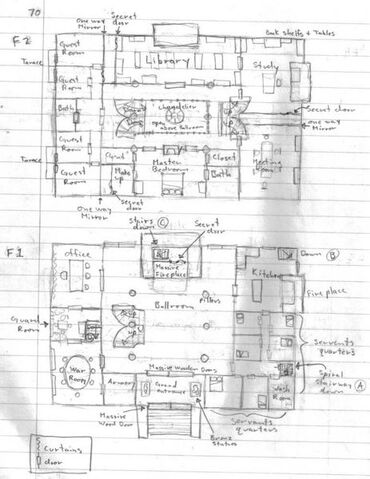 70
F2
one way
Mirror
Secret
door
Book shelfs & Tables
Guest
Room
Terrace
Library
Study
Guest
Room
Bath
Chandelier
open
above Ballroom
up
Secret door
one way
Mirror
Guest
Room
Terrace
Guest
Room
Make
up
Master
Bedroom
Closet
Bath
Meeting
Room
one way
Mirror
Secret
door
Stairs
down C
Secret
door
F1
office
Massive
Fireplace
Kitchen
Down B
Fire place
Ballroom
pillars
Guard
Room
up
up
Servents
quarters
War
Room
Massive Wooden Doors
Armory
Grand
entrance
Spiral
Stairway
down A
Wash
Room
Massive
Wood Door
Bronz
Statues
Servents
quarters
Curtains
door